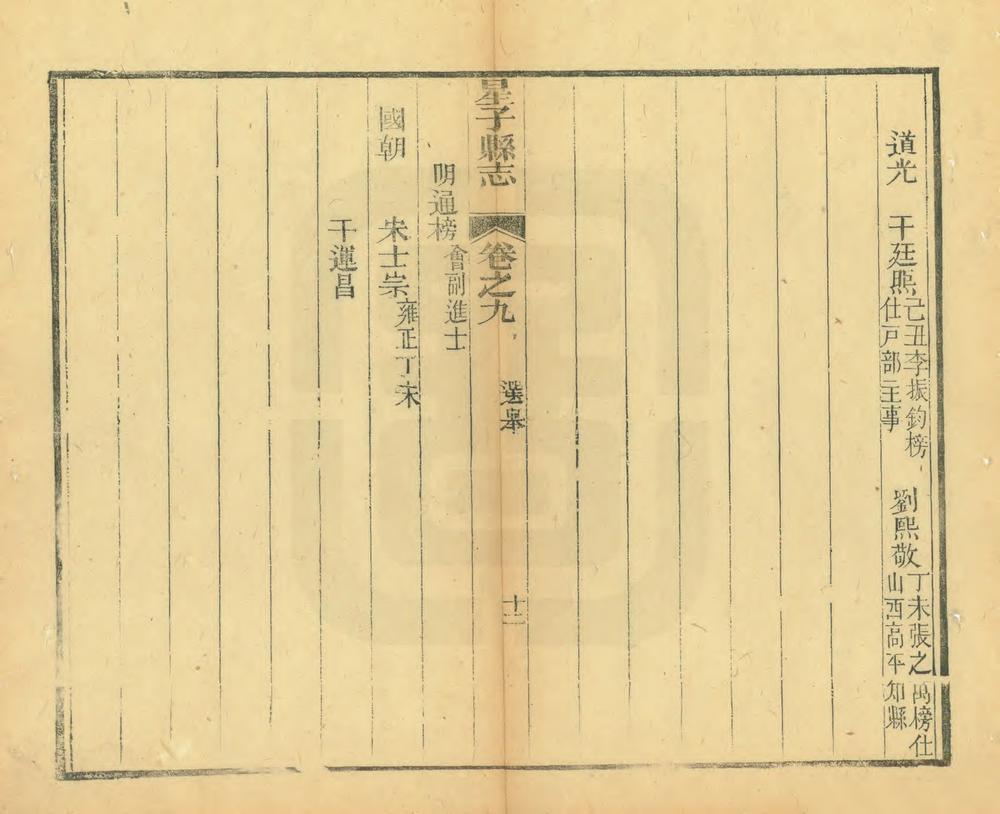 道光　干廷熈己丑李振鈞榜仕戸部主事　劉熙敬丁未張之萬榜仕山西高平知縣
星子縣志　卷之九　選舉　十二
明通榜會副進士
國朝　朱士崇雍正丁未
干運昌